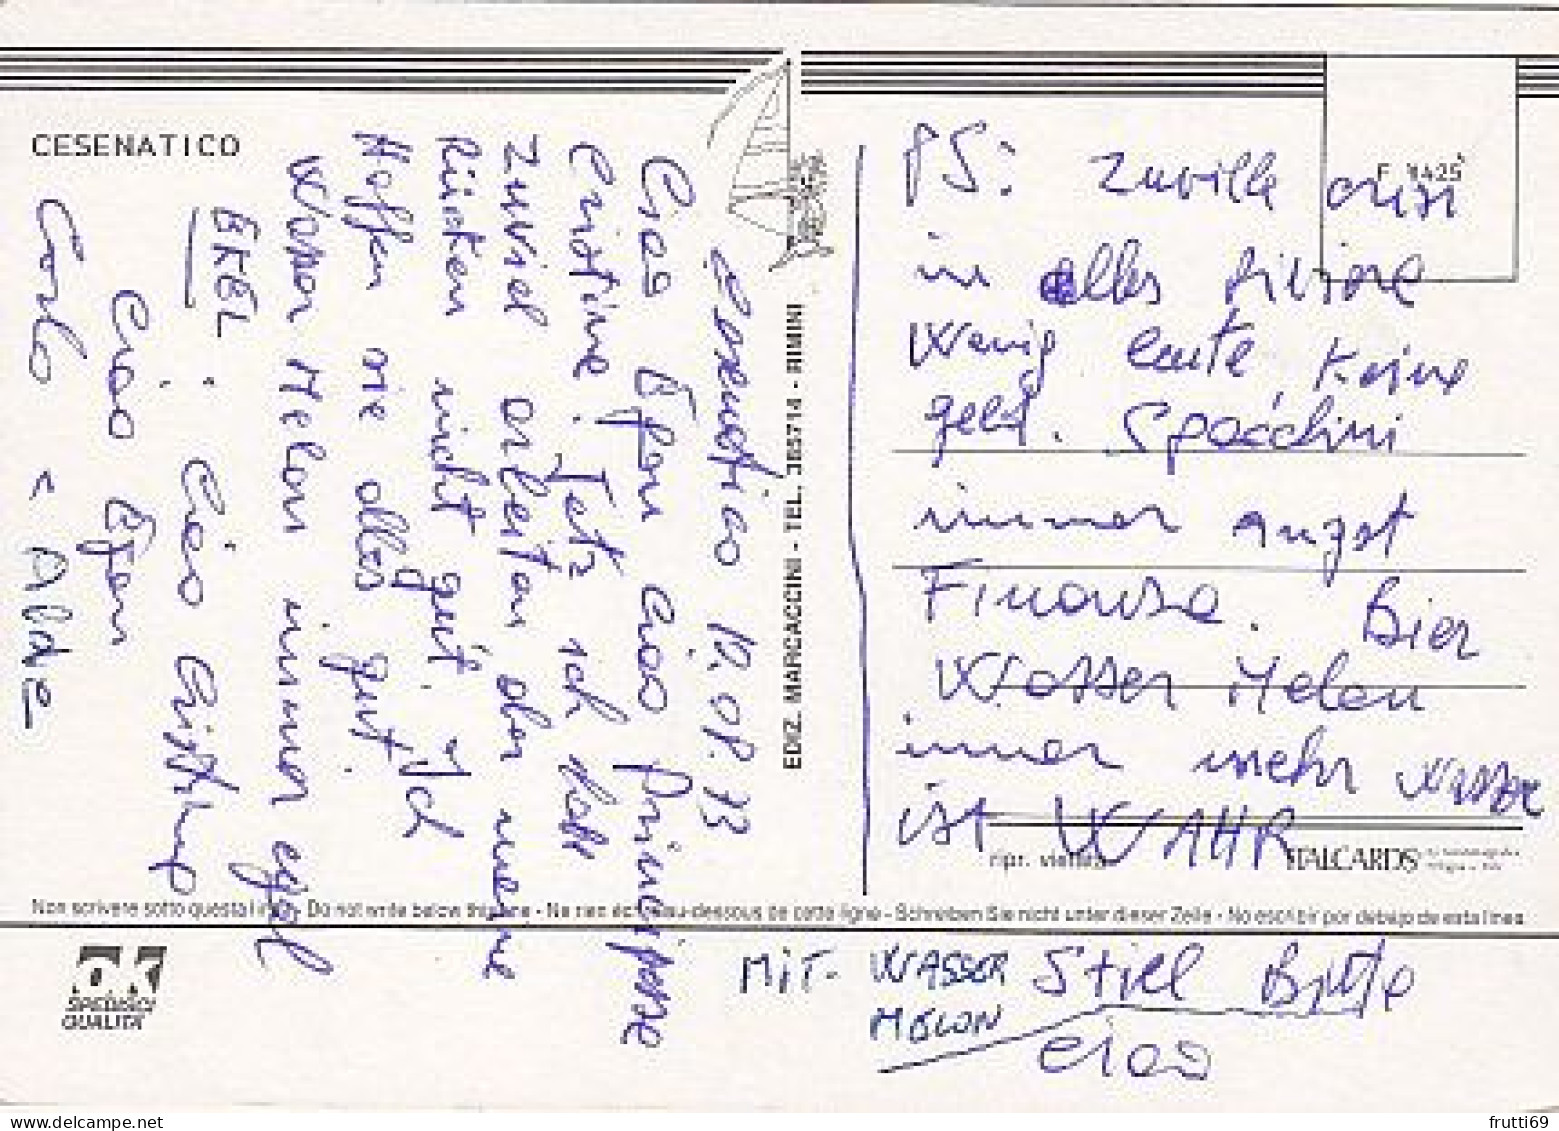 CESENATICO
Cesenatico 12.08.93
Ciao Efem Ciao Principessa
Cristine! Jetz ich hatt
zuviel arbeiten aber meine
Rücken nicht gut. Ich
Hoffen sie alles gut!
Wasser Melon immer egal
EKEL: Ciao Cristine
Ciao Efem
Carlo
EDIZ. MARCACCINI - TEL. 385714 - RIMINI
F 9425
PS: zuville crisi
in alles riviera
Wenig leute, Keine
geld.
immer angst
Finanza. Bier
Wasser Melon
immer mehr Wasser
ist WAHR
ripr. vietata
ITALCARDS
Non scrivere sotto questa linea - Do not write below this line - Ne rien écrire au-dessous de cette ligne - Schreiben Sie nicht unter dieser Zeile - No escribir por debajo de esta linea
OK
SPEDISCI
QUALITÀ
MIT- WASSER Stiel Bitte
MELON
ciao
frutti69